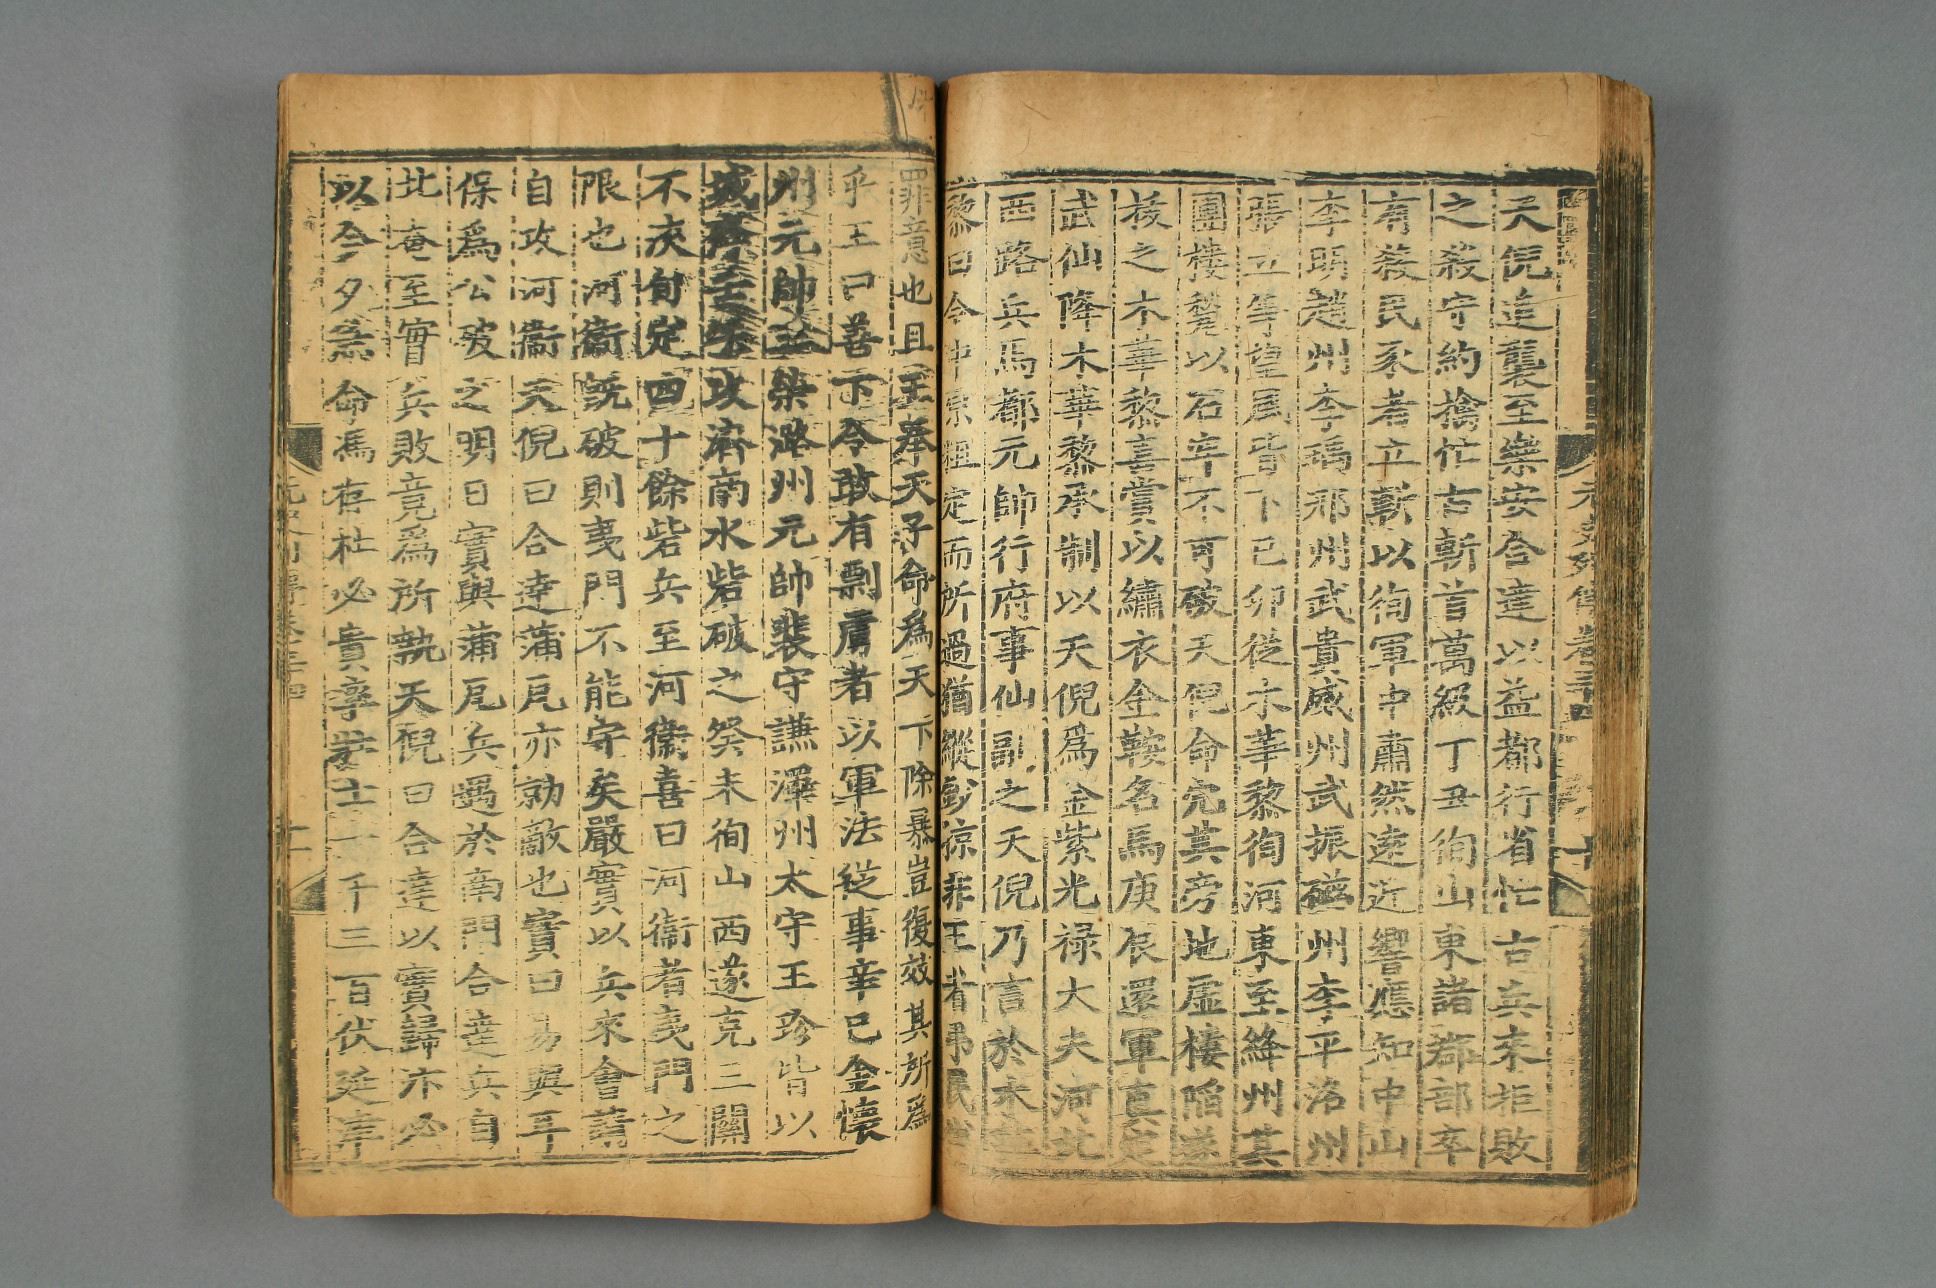 元史列傳卷三十四
十
天倪追襲至樂安合達以益都行省忙古兵來拒敗
之殺守約擒忙古斬首萬級丁丑徇山東諸郡部卒
有殺民豕者立斬以徇軍中肅然遠近響應知中山
李明趙州李瑀邢州武貴威州武振磁州李平洺州
張立等望風皆下己卯從木華黎徇河東至絳州其
團樓甃以石牢不可破天倪命穴其旁地虛樓陷遂
拔之木華黎喜賞以繡衣金鞍名馬庚辰還軍真定
武仙降木華黎承制以天倪為金紫光祿大夫河北
西路兵馬都元帥行府事仙副之天倪乃言於木華
黎曰今中原粗定而所過猶縱鈔掠非王者弔民
罪意也且王奉天子命爲天下除暴豈復效其所爲
乎王曰善下令敢有剽虜者以軍法從事辛巳金懷
州元帥王榮潞州元帥裴守謙澤州太守王珍皆以
城降壬午攻濟南水砦破之癸未徇山西遂克三關
不浹旬定四十餘砦兵至河衞喜曰河衞者夷門之
限也河衞旣破則夷門不能守矣嚴實以兵來會請
自攻河衞天倪曰合達蒲瓦亦勍敵也實曰易與耳
保爲公破之明日實與蒲瓦兵遇於南門合達兵自
北奄至實兵敗竟爲所執天倪曰合達以實歸汴必
以今夕焉命馮存杜必貴率勁士一千三百伏延津
元史列傳卷三十四
十一